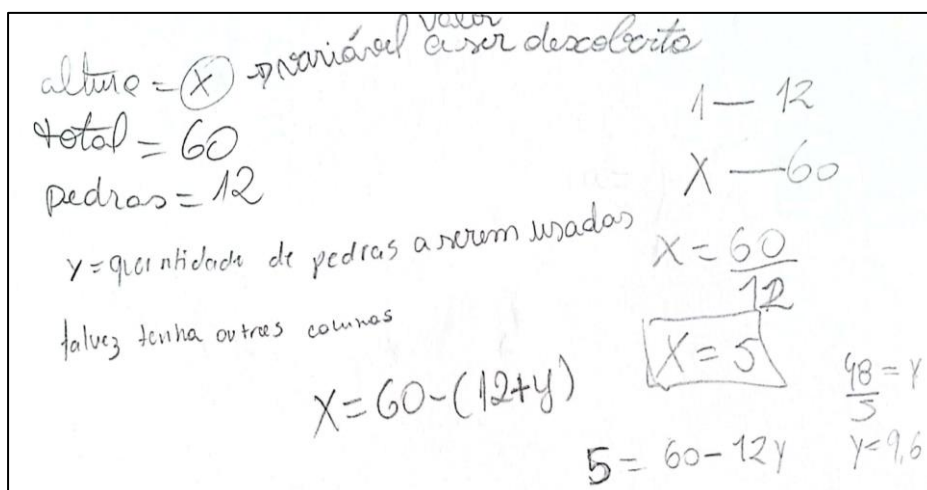 valor
altura = x → variável a ser descoberta
total = 60
pedras = 12
y = quantidade de pedras a serem usadas
talvez tenha outras colunas
X = 60 - (12+y)
1 — 12
X — 60
X = 60/12
X = 5
5 = 60 - 12y
48/5 = y
y = 9,6